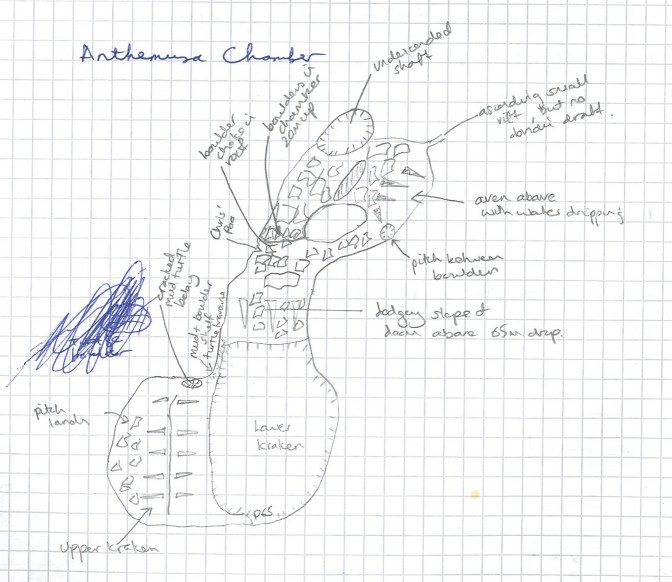 Anthemusa Chamber
undescended
shaft
ascending small
rift, but no
draft.
boulders in
chamber
2m up
boulder
choke in
roof
aven above
with water dripping
Chris'
Poo
pitch between
boulders
cracked
mud turtle
belay
mud + boulder
turtle traverse
dodgey slope of
doom above 65m drop.
boulder
pitch
lands
Lower
Kraken
P65
Upper Kraken